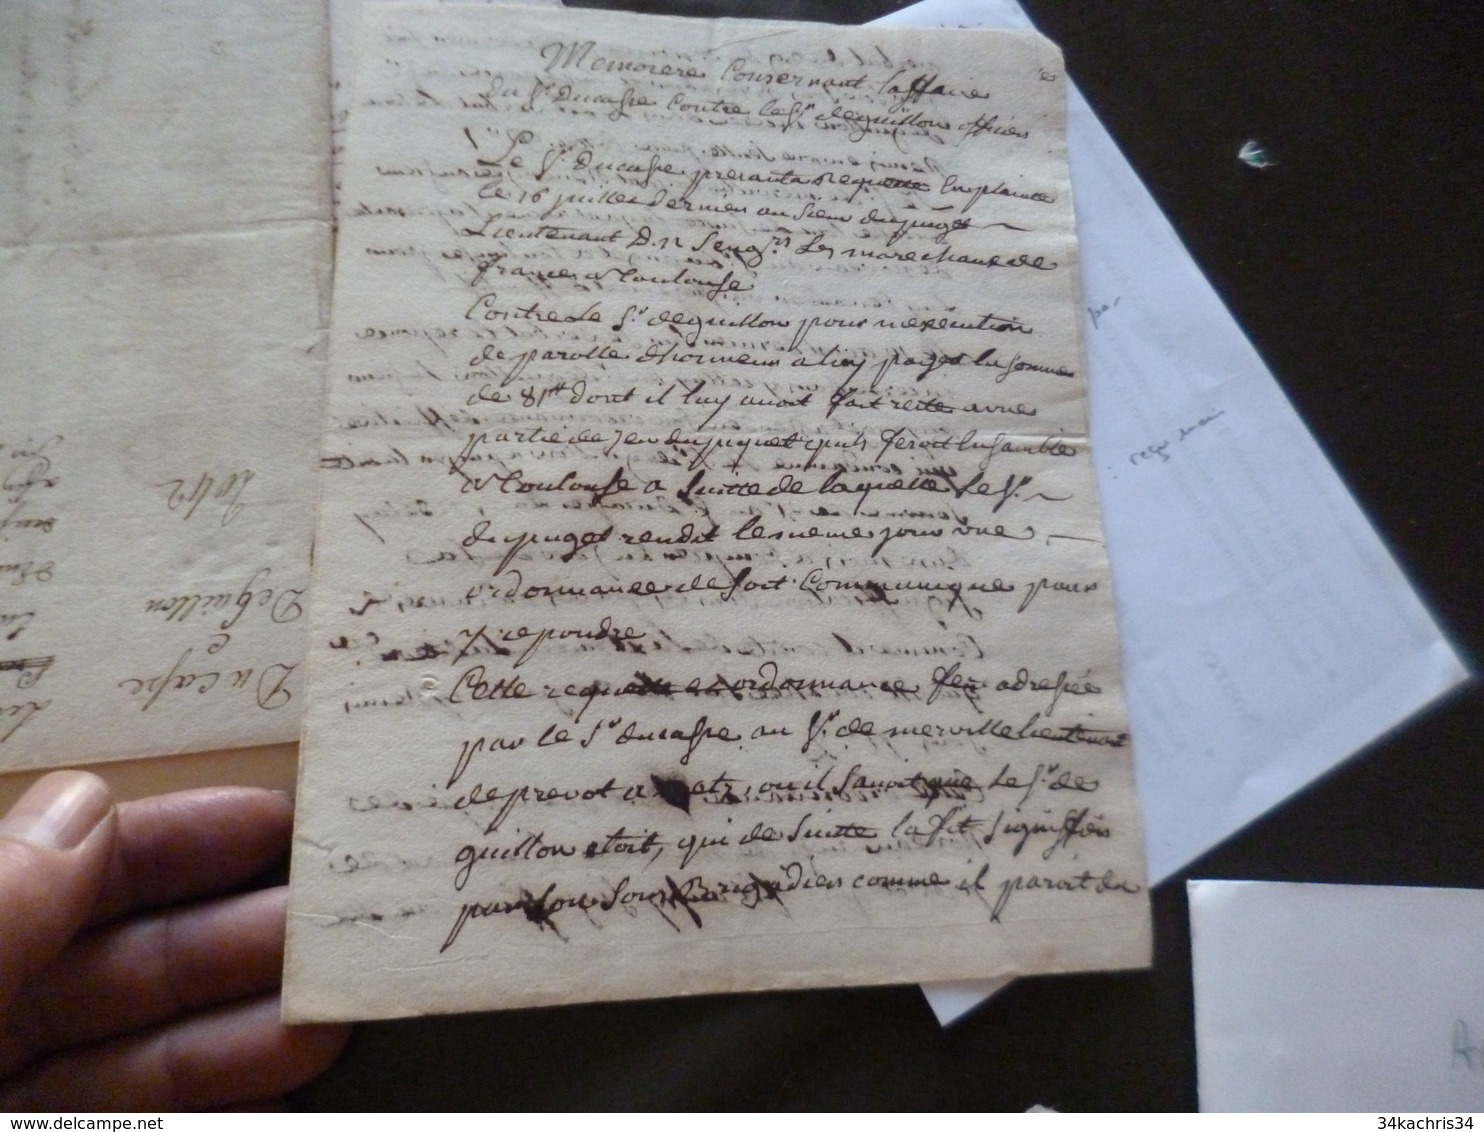 Memoiere Consernant laffaire
du Sr. Ducasse Contre le Sr. deguillon officier
1°
Le Sr. Ducasse presanta Requette En plainte
le 16 juillet dernier au Sieur dupuget
Lieutenant D. n. Seugrs. Les marechaux de
france a Toulouse
Contre le Sr. deguillon pour nexecution
de parolle dhonneur a luy payer la somme
de 81tt dont il luy avoit fait reste a une
partie de jeu du piquet quils feroit Ensamble
a Toulouse a Suitte de laquelle Le Sr.
dupuget rendit le meme jour une
ordonnance de soit Communique pour
y repondre
Cette requette et ordonnance feu adressée
par le Sr ducasse au Sr. de merville lieutenant
de prevot a metz, ou il savoit que Le Sr. de
guillon etoit, qui de Suitte la fit Signiffier
par Son Sous Brigadier comme il paroit du
Ducasse
Deguillon
reçu mais
par
34kachris34
www.delcampe.net